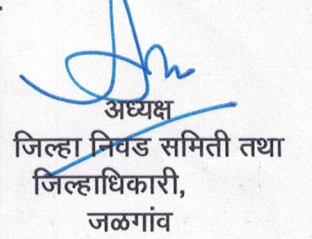 अध्यक्ष
जिल्हा निवड समिती तथा
जिल्हाधिकारी,
जळगांव